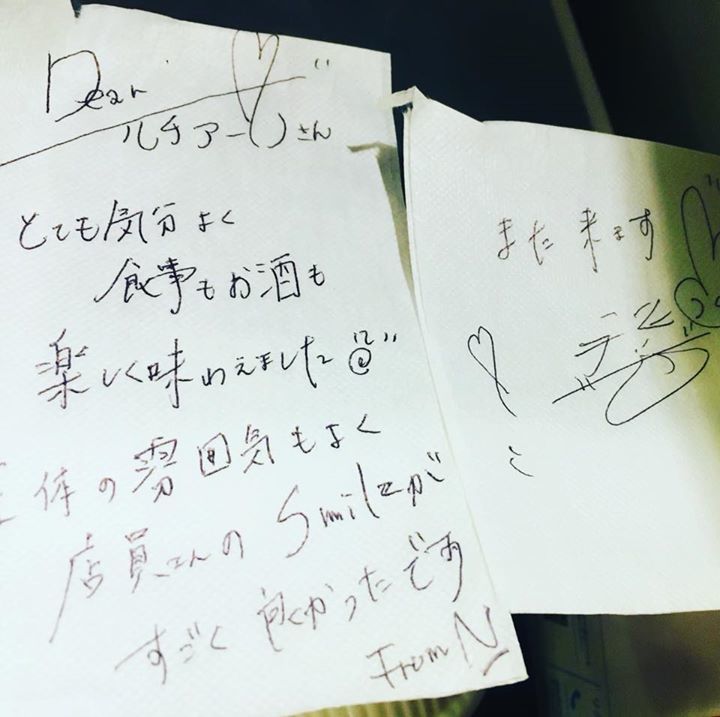 Dear
ルチアーノさん
とても気分よく
食事もお酒も
楽しく味わえました
全体の雰囲気もよく
店員さんのSmileが
すごく良かったです
From N
また来ます